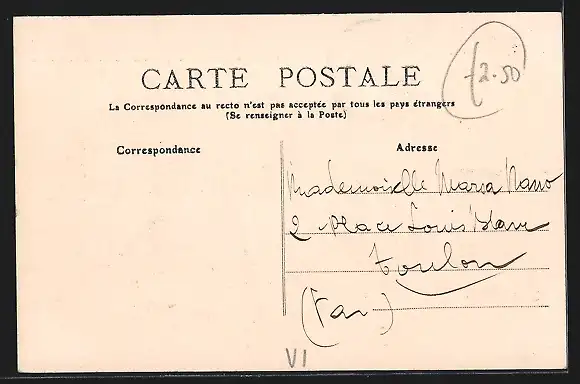 CARTE POSTALE
La Correspondance au recto n'est pas acceptée par tous les pays étrangers
(Se renseigner à la Poste)
Correspondance
Adresse
Mademoiselle Maria Nano
2 Place Louis Blanc
Toulon
(Var)
2.50
VI